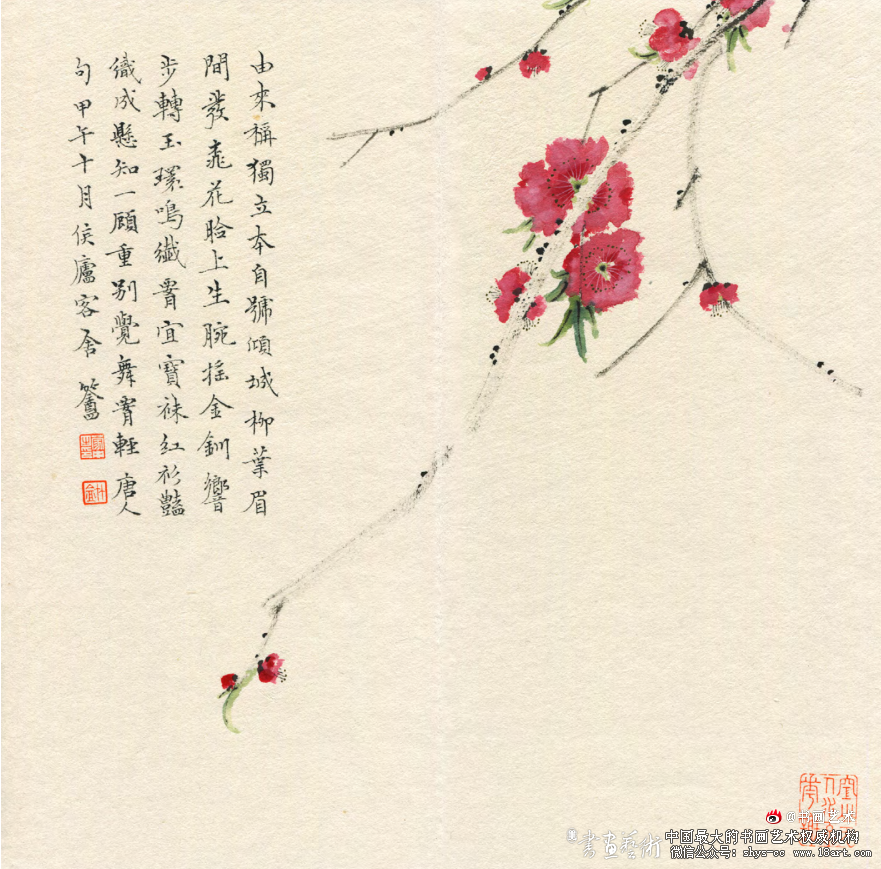 由來稱獨立本自號傾城柳葉眉
間發桃花臉上生腕搖金釧響
步轉玉環鳴纖腰宜寶袜紅衫豔
織成懸知一顧重別覺舞腰輕唐人
句甲午十月侯廬客舍
@书画艺术
書畫藝術
中国最大的书画艺术权威机构
微信公众号: shys-cc www.18art.com